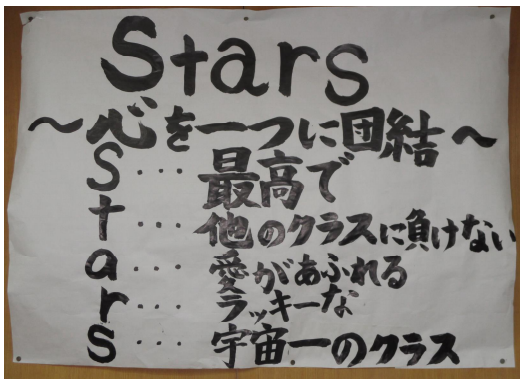 Stars
～心を一つに団結～
S…最高で
t…他のクラスに負けない
a…愛があふれる
r…ラッキーな
s…宇宙一のクラス